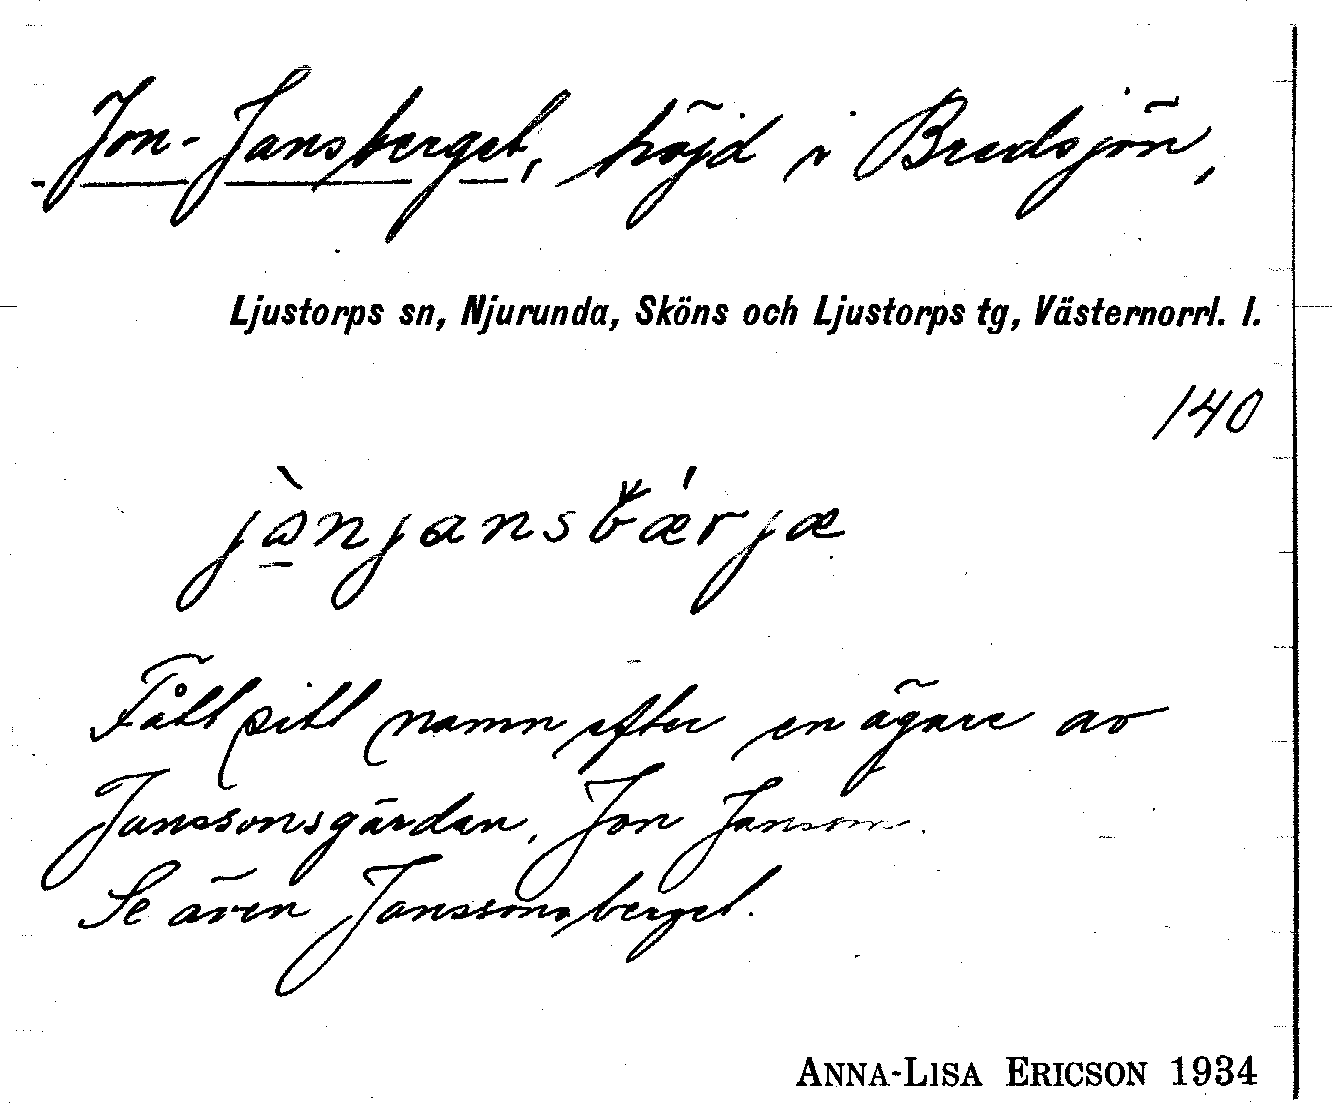 Jon-Jansberget, höjd i Bredsjön,
Ljustorps sn, Njurunda, Sköns och Ljustorps tg, Västernorrl. l.
140
jὰnjansbǽrjæ
Fått sitt namn efter en ägare av
Janssonsgården, Jon Janson.
Se även Janssonsberget.
ANNA-LISA ERICSON 1934